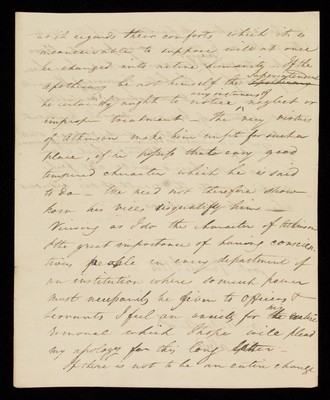 with regards their comforts which it is
inconceivable to suppose will at once
be changed into active humanity. If the
apothecary be not himself the Superintendent
he certainly ought to notice any instances of neglect or
improper treatment – The very
of Atkinson make him unfit for such a
place, if he possess that easy good
tempered character which he is said
to do – We need not therefore show
how his vices disqualify him –
Viewing as I do the character of Atkinson
& the great importance of having conscien
tious people in every department of
an institution where so much power
must necessarily be given to Officers &
Servants I feel an anxiety for his entire
removal which I hope will plead
my apology for this long letter –
If there is not to be an entire change